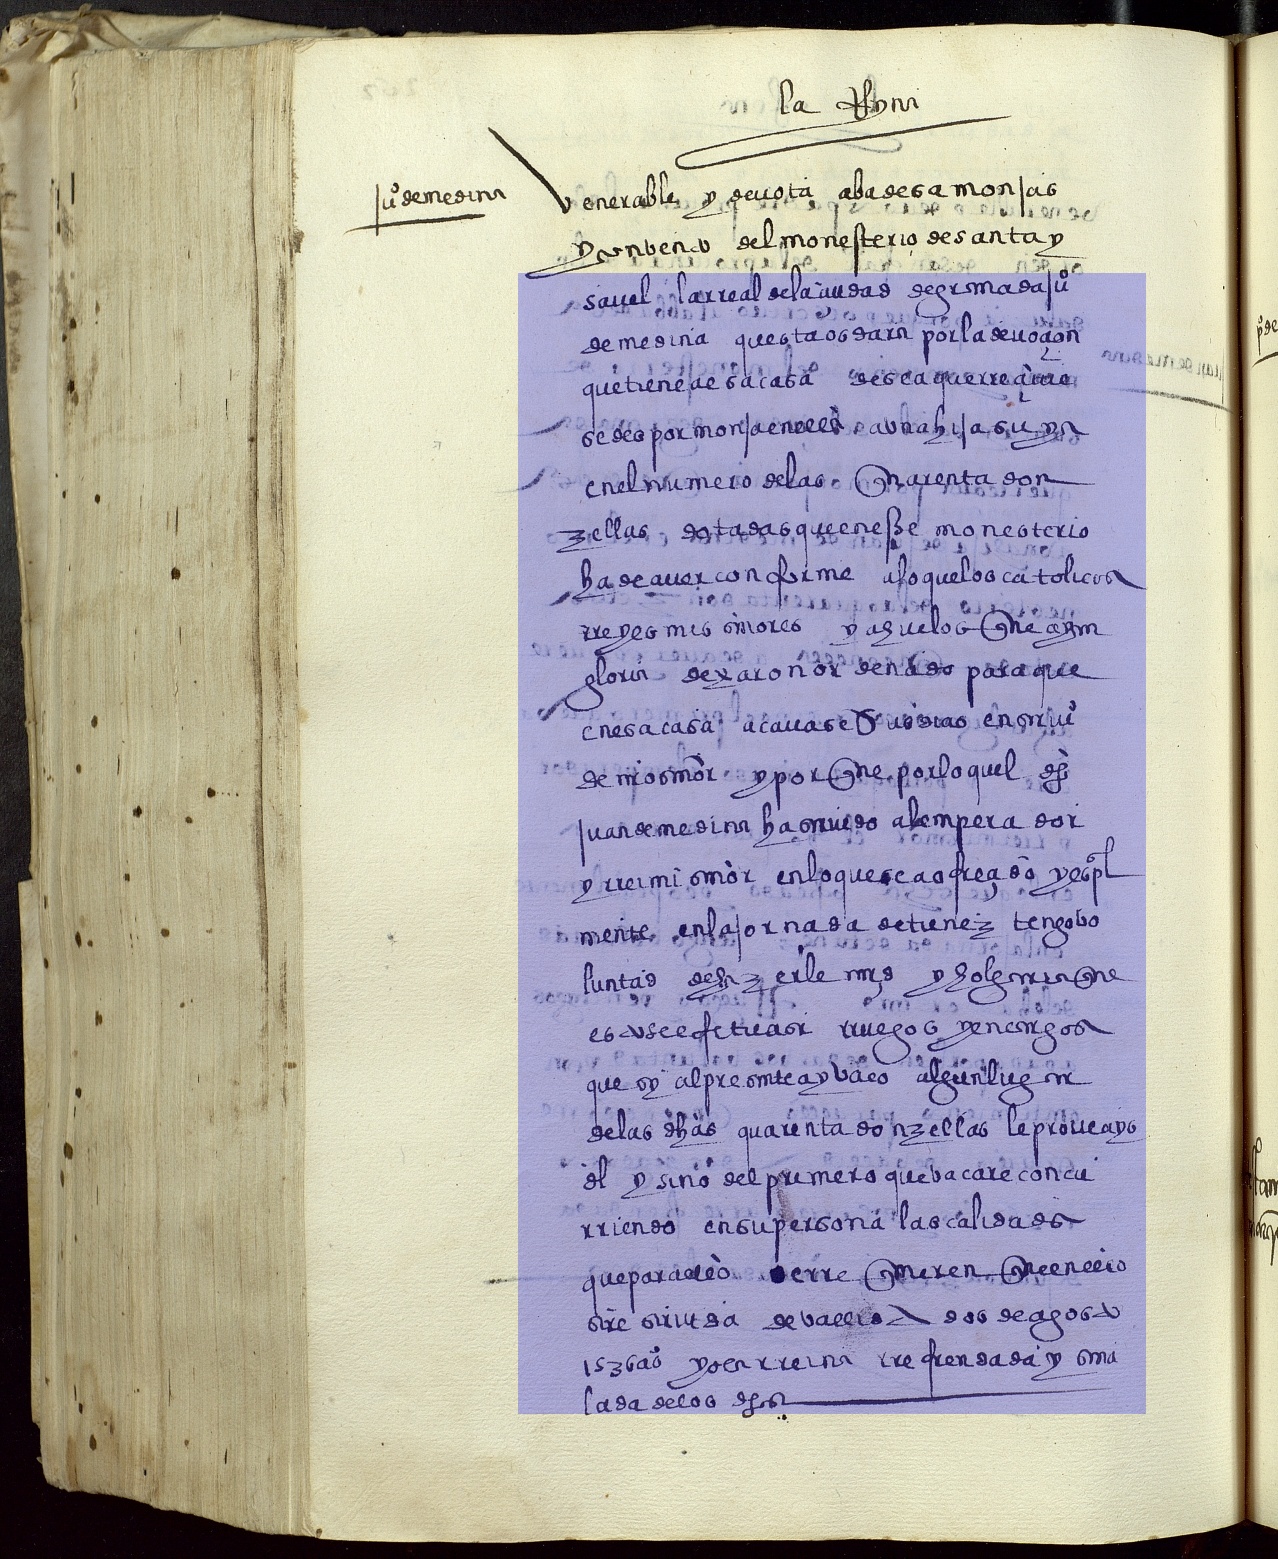 la Reyna
Ju° de medina
venerable y deuota abadesa monjas
y convento del monesterio de santa y
sauel la rreal de la ciudad de granada ju°
de medina questa os dara por la deuoçion
que tiene a esa casa desea que rreçiuie
sedes por monja en ella a una hija suya
en el numero de las quarenta don
zellas dotadas que en ese monesterio
ha de aver conforme a lo que los catolicos
rreyes mis señores y ahuelos que ayan
gloria dexaron ordenado para que
en esa casa acauase sus dias en serui°
de nro señor y por que por lo quel dho
juan de medina ha seruido al emperador
y rrei mi señor en lo que sea ofreçido y espeçial
mente en la jornada de tunez tengo bo
luntad de hazerle mrd y holgaria que
esto se efetuase rruego y encargo
que sy al presente ay vaco algun lugar
de las dhas quarenta donzellas le proueays
del y sino del primero que bacare concu
rriendo en su persona las calidades
que para ello se rre quieren que en ello
sere seruida de valld dos de agosto
1536 a°s yo la rreina rrefrendada y seña
lada de los dhos